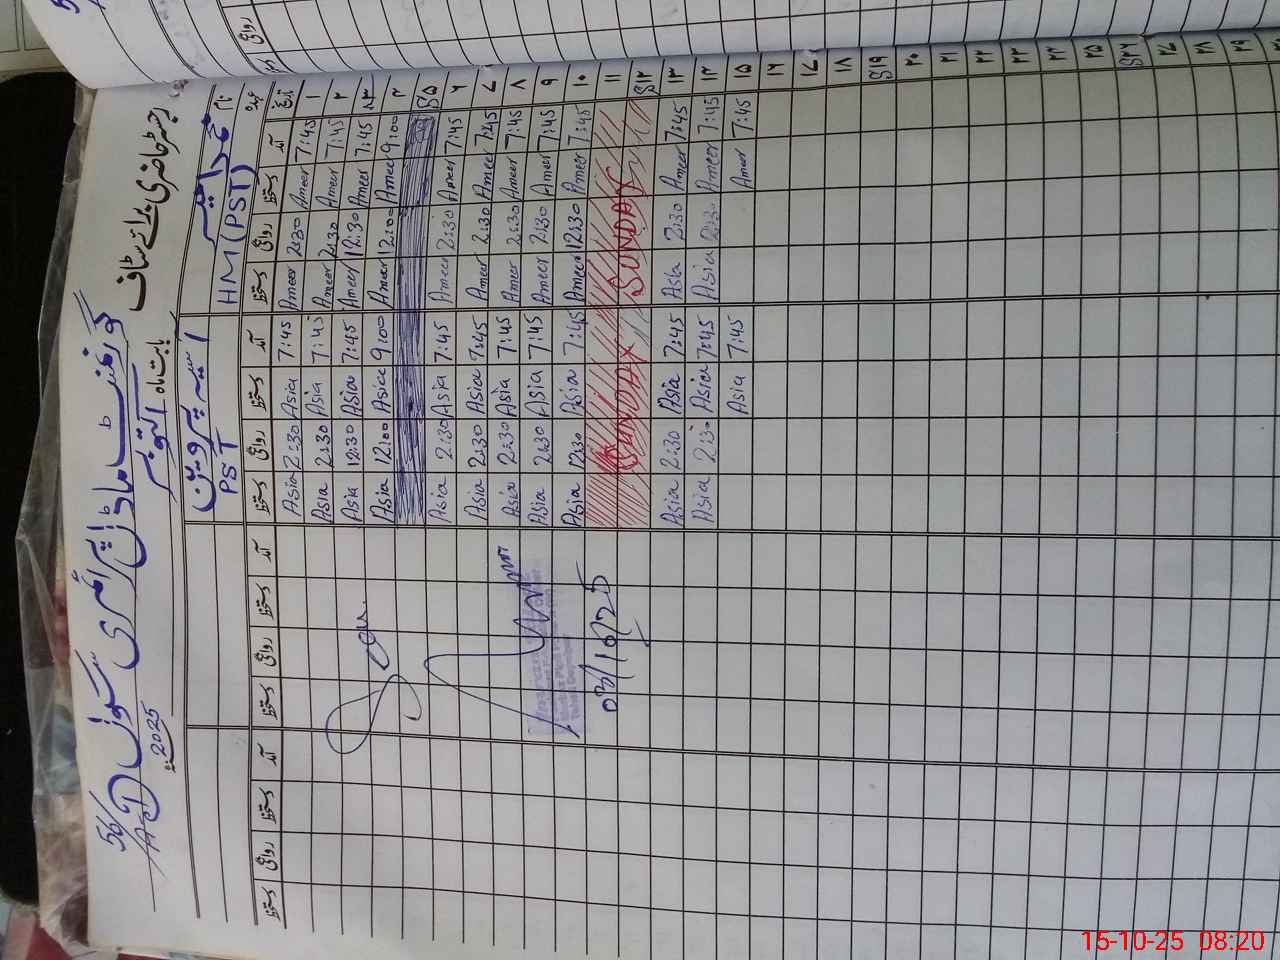 رجسٹر حاضری برائے سٹاف
گورنمنٹ ماڈل پرائمری سکول 56/
بابت ماہ اکتوبر 2025ء
نام محمد امیر آسیہ پروین
عہدہ HM (PST) PST
تاریخ آمد دستخط روانگی دستخط آمد دستخط روانگی دستخط آمد دستخط روانگی دستخط آمد دستخط روانگی دستخط
۱ 7:45 Ameer 2:30 Ameer 7:45 Asia 2:30 Asia
۲ 7:45 Ameer 2:30 Ameer 7:45 Asia 2:30 Asia
۳ 7:45 Ameer 12:30 Ameer 7:45 Asia 12:30 Asia
۴ 9:00 Ameer 12:00 Ameer 9:00 Asia 12:00 Asia
S ۵
۶ 7:45 Ameer 2:30 Ameer 7:45 Asia 2:30 Asia
۷ 7:45 Ameer 2:30 Ameer 7:45 Asia 2:30 Asia
۸ 7:45 Ameer 2:30 Ameer 7:45 Asia 2:30 Asia
۹ 7:45 Ameer 2:30 Ameer 7:45 Asia 2:30 Asia
۱۰ 7:45 Ameer 12:30 Ameer 7:45 Asia 12:30 Asia
۱۱ SUNDAY
S ۱۲ SUNDAY
۱۳ 7:45 Ameer 2:30 Asia 7:45 Asia 2:30 Asia
۱۴ 7:45 Ameer 2:30 Asia 7:45 Asia 2:30 Asia
۱۵ 7:45 Ameer 7:45 Asia
۱۶
۱۷
۱۸
S ۱۹
۲۰
۲۱
۲۲
۲۳
۲۴
۲۵
S ۲۶
۲۷
۲۸
۲۹
15-10-25 08:20